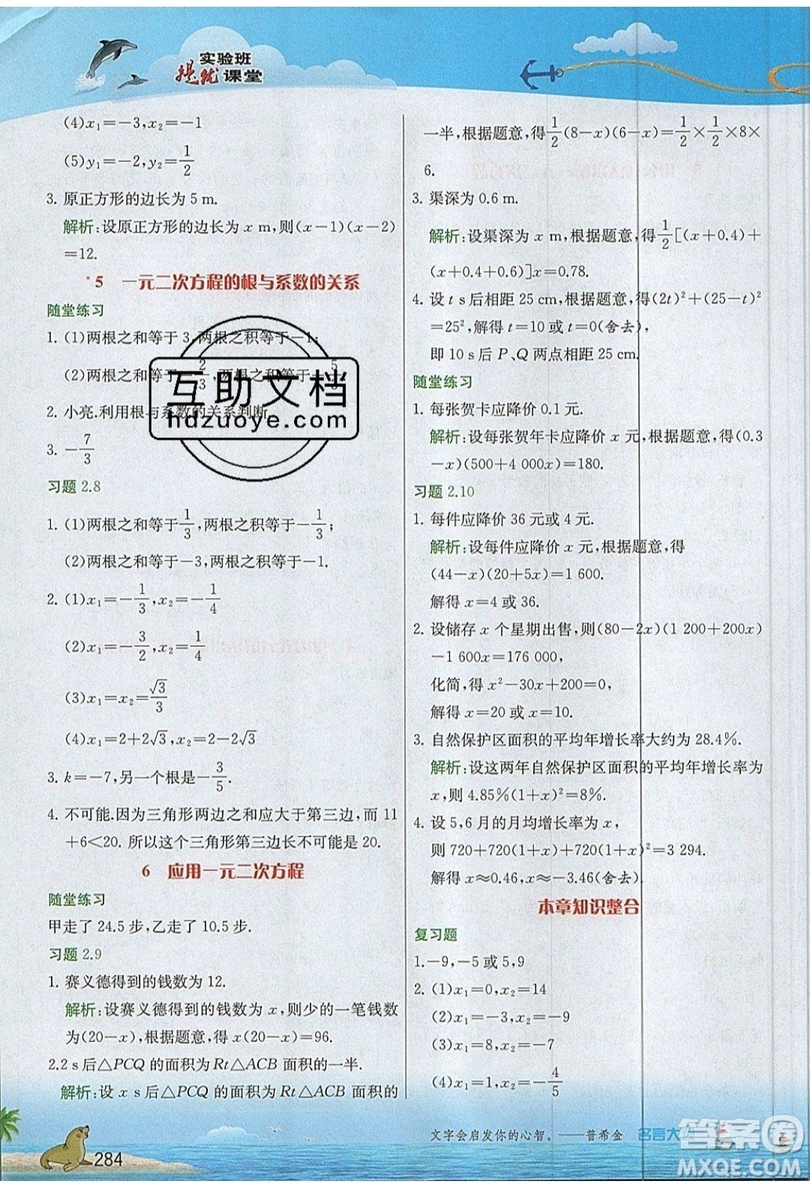 实验班
提优课堂
(4)x₁=-3,x₂=-1
(5)y₁=-2,y₂=1/2
3. 原正方形的边长为 5 m.
解析:设原正方形的边长为 x m,则(x-1)(x-2)
=12.
*5 一元二次方程的根与系数的关系
随堂练习
1. (1)两根之和等于 3,两根之积等于-1;
(2)两根之和等于-2/3,两根之积等于-5/3
2. 小亮.利用根与系数的关系判断.
3. -7/3
习题 2.8
1. (1)两根之和等于1/3,两根之积等于-1/3;
(2)两根之和等于-3,两根之积等于-1.
2. (1)x₁=-1/3,x₂=-1/4
(2)x₁=-3/2,x₂=1/4
(3)x₁=x₂=√3/3
(4)x₁=2+2√3,x₂=2-2√3
3. k=-7,另一个根是-3/5.
4. 不可能.因为三角形两边之和应大于第三边,而 11
+6<20. 所以这个三角形第三边长不可能是 20.
6 应用一元二次方程
随堂练习
甲走了 24.5 步,乙走了 10.5 步.
习题 2.9
1. 赛义德得到的钱数为 12.
解析:设赛义德得到的钱数为 x,则少的一笔钱数
为(20-x),根据题意,得 x(20-x)=96.
2.2 s后△PCQ 的面积为 Rt△ACB 面积的一半.
解析:设 x s后△PCQ 的面积为 Rt△ACB 面积的
一半,根据题意,得1/2(8-x)(6-x)=1/2×1/2×8×
6.
3. 渠深为 0.6 m.
解析:设渠深为 x m,根据题意,得1/2[(x+0.4)+
(x+0.6+0.4)]x=0.78.
4. 设 t s后相距 25 cm,根据题意,得(2t)²+(25-t)²
=25²,解得 t=10 或 t=0(舍去),
即 10 s后 P、Q 两点相距 25 cm.
随堂练习
1. 每张贺卡应降价 0.1 元.
解析:设每张贺年卡应降价 x 元,根据题意,得(0.3
-x)(500+4 000x)=180.
习题 2.10
1. 每件应降价 36 元或 4 元.
解析:设每件应降价 x 元,根据题意,得
(44-x)(20+5x)=1600.
解得 x=4 或 36.
2. 设储存 x 个星期出售,则(80-2x)(1 200+200x)
-1 600x-64 000=122 000,
化简,得 x²-30x+200=0,
解得 x=20 或 x=10.
3. 自然保护区面积的平均年增长率大约为 28.4%.
解析:设这两年自然保护区面积的平均年增长率为
x,得 4.85%(1+x)²=8%.
4. 设 5,6 月的月均增长率为 x,
则 720+720(1+x)+720(1+x)²=3 294.
解得 x≈0.46,x≈-3.46(舍去).
本章知识整合
复习题
1.-9,-5 或 5,9
2. (1)x₁=0,x₂=14
(2)x₁=-3,x₂=-9
(3)x₁=8,x₂=-7
(4)x₁=1,x₂=-4/5
文字会启发你的心智。——普希金 名言大
284
互助文档
hdzuoye.com
答案圈
MXQE.COM